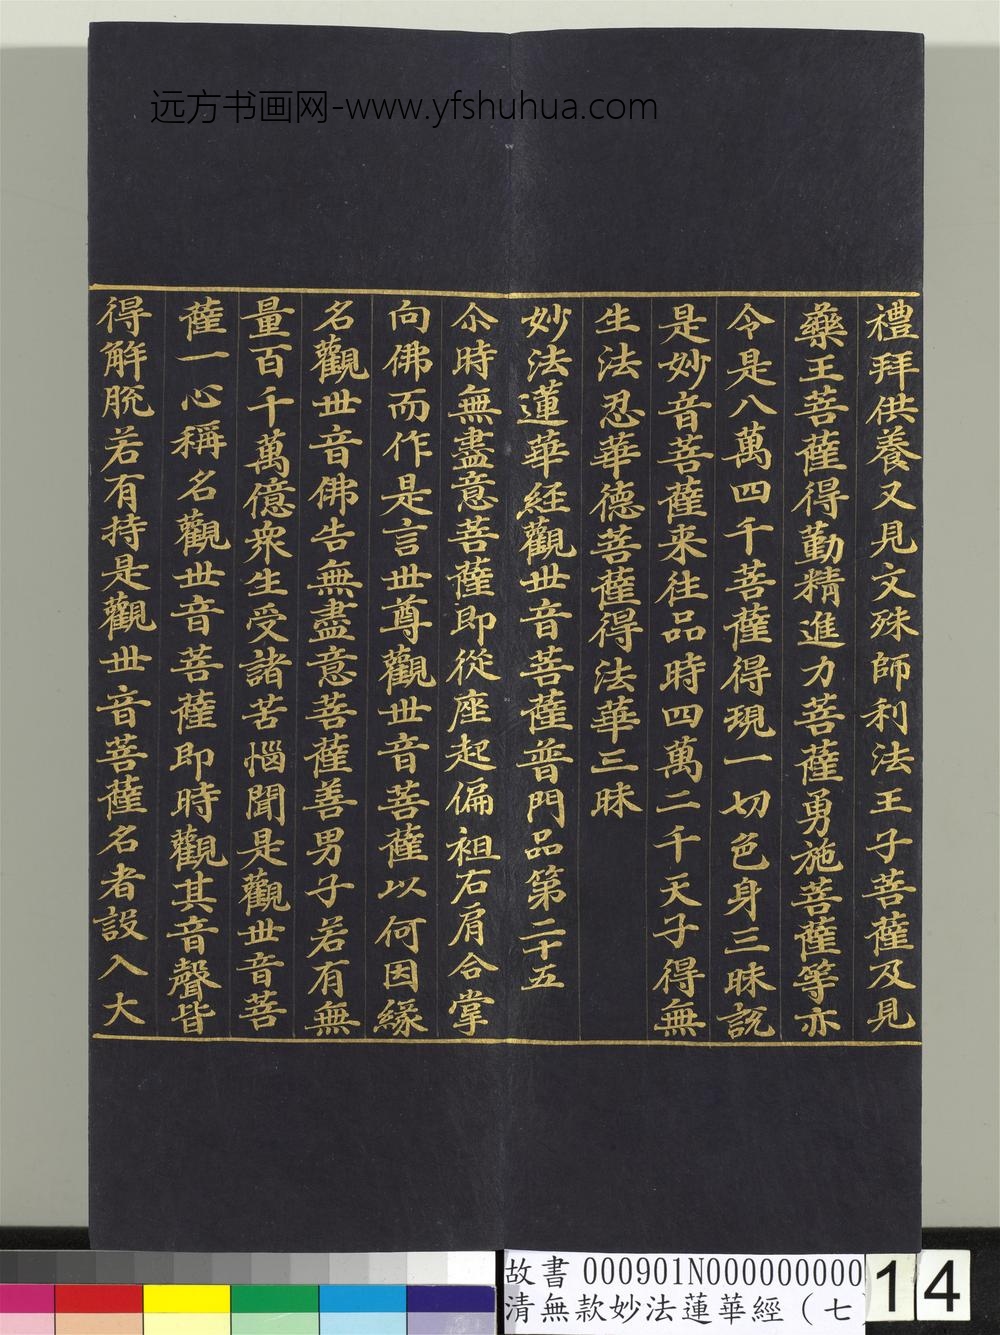 远方书画网-www.yfshuhua.com
禮拜供養又見文殊師利法王子菩薩及見
藥王菩薩得勤精進力菩薩勇施菩薩等亦
令是八萬四千菩薩得現一切色身三昧說
是妙音菩薩来往品時四萬二千天子得無
生法忍華德菩薩得法華三昧
妙法蓮華經觀世音菩薩普門品第二十五
尒時無盡意菩薩即從座起偏袒右肩合掌
向佛而作是言世尊觀世音菩薩以何因緣
名觀世音佛告無盡意菩薩善男子若有無
量百千萬億衆生受諸苦惱聞是觀世音菩
薩一心稱名觀世音菩薩即時觀其音聲皆
得解脫若有持是觀世音菩薩名者設入大
故書 000901N000000000
清無款妙法蓮華經（七
14